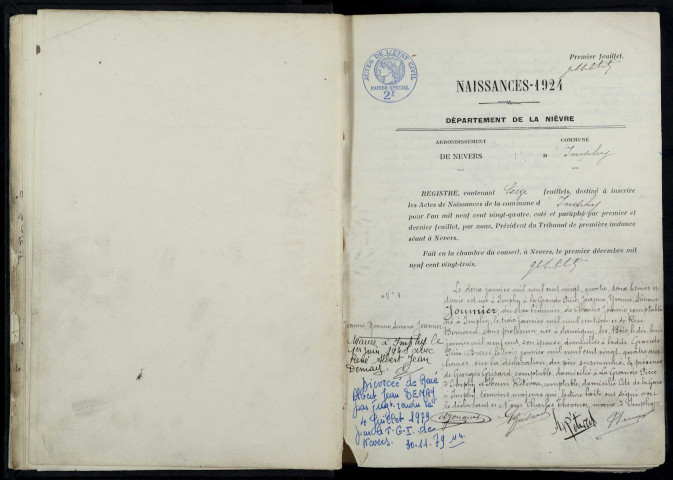 Premier feuillet.
ACTES DE L'ETAT CIVIL
PAPIER SPECIAL
2F
NAISSANCES-1924
DÉPARTEMENT DE LA NIÈVRE
ARRONDISSEMENT
COMMUNE
DE NEVERS
D Imphy
REGISTRE, contenant feuillets, destiné à inscrire
les Actes de Naissances de la commune d'Imphy
pour l'an mil neuf cent vingt-quatre, coté et paraphé par premier et
dernier feuillet, par nous, Président du Tribunal de première instance
séant à Nevers.
Fait en la chambre du conseil, à Nevers, le premier décembre mil
neuf cent vingt-trois.
N° 1
Jeanne Yvonne Simone Joumier
Mariée à Imphy le
1er juin 1946 avec
René Albert Jean
Demay
Divorcée de René
Albert Jean DEMAY
par jugt rendu le
4 Juillet 1979
par le T.G.I. de
Nevers.
30.11.79
Le deux janvier mil neuf cent vingt quatre, onze heures
est née à Imphy à la Grande Pièce Jeanne, Yvonne, Simone
Joumier, du sexe féminin de Charles Joumier comptable
né à Imphy, le trois janvier mil neuf cent et de Reine
Bernard, sans profession née à
mil neuf cent, son épouse, domiciliés à la dite Grande
Pièce. Dressé le trois janvier mil neuf cent vingt quatre
heures, sur la déclaration du père susnommé. En présence
de Georges Guisard, comptable, domicilié à la Grande Pièce
à Imphy et Henri comptable, domicilié Cité de la Gare
à Imphy, témoins majeurs qui, lecture faite ont signé avec
le déclarant et Nous Charles maire